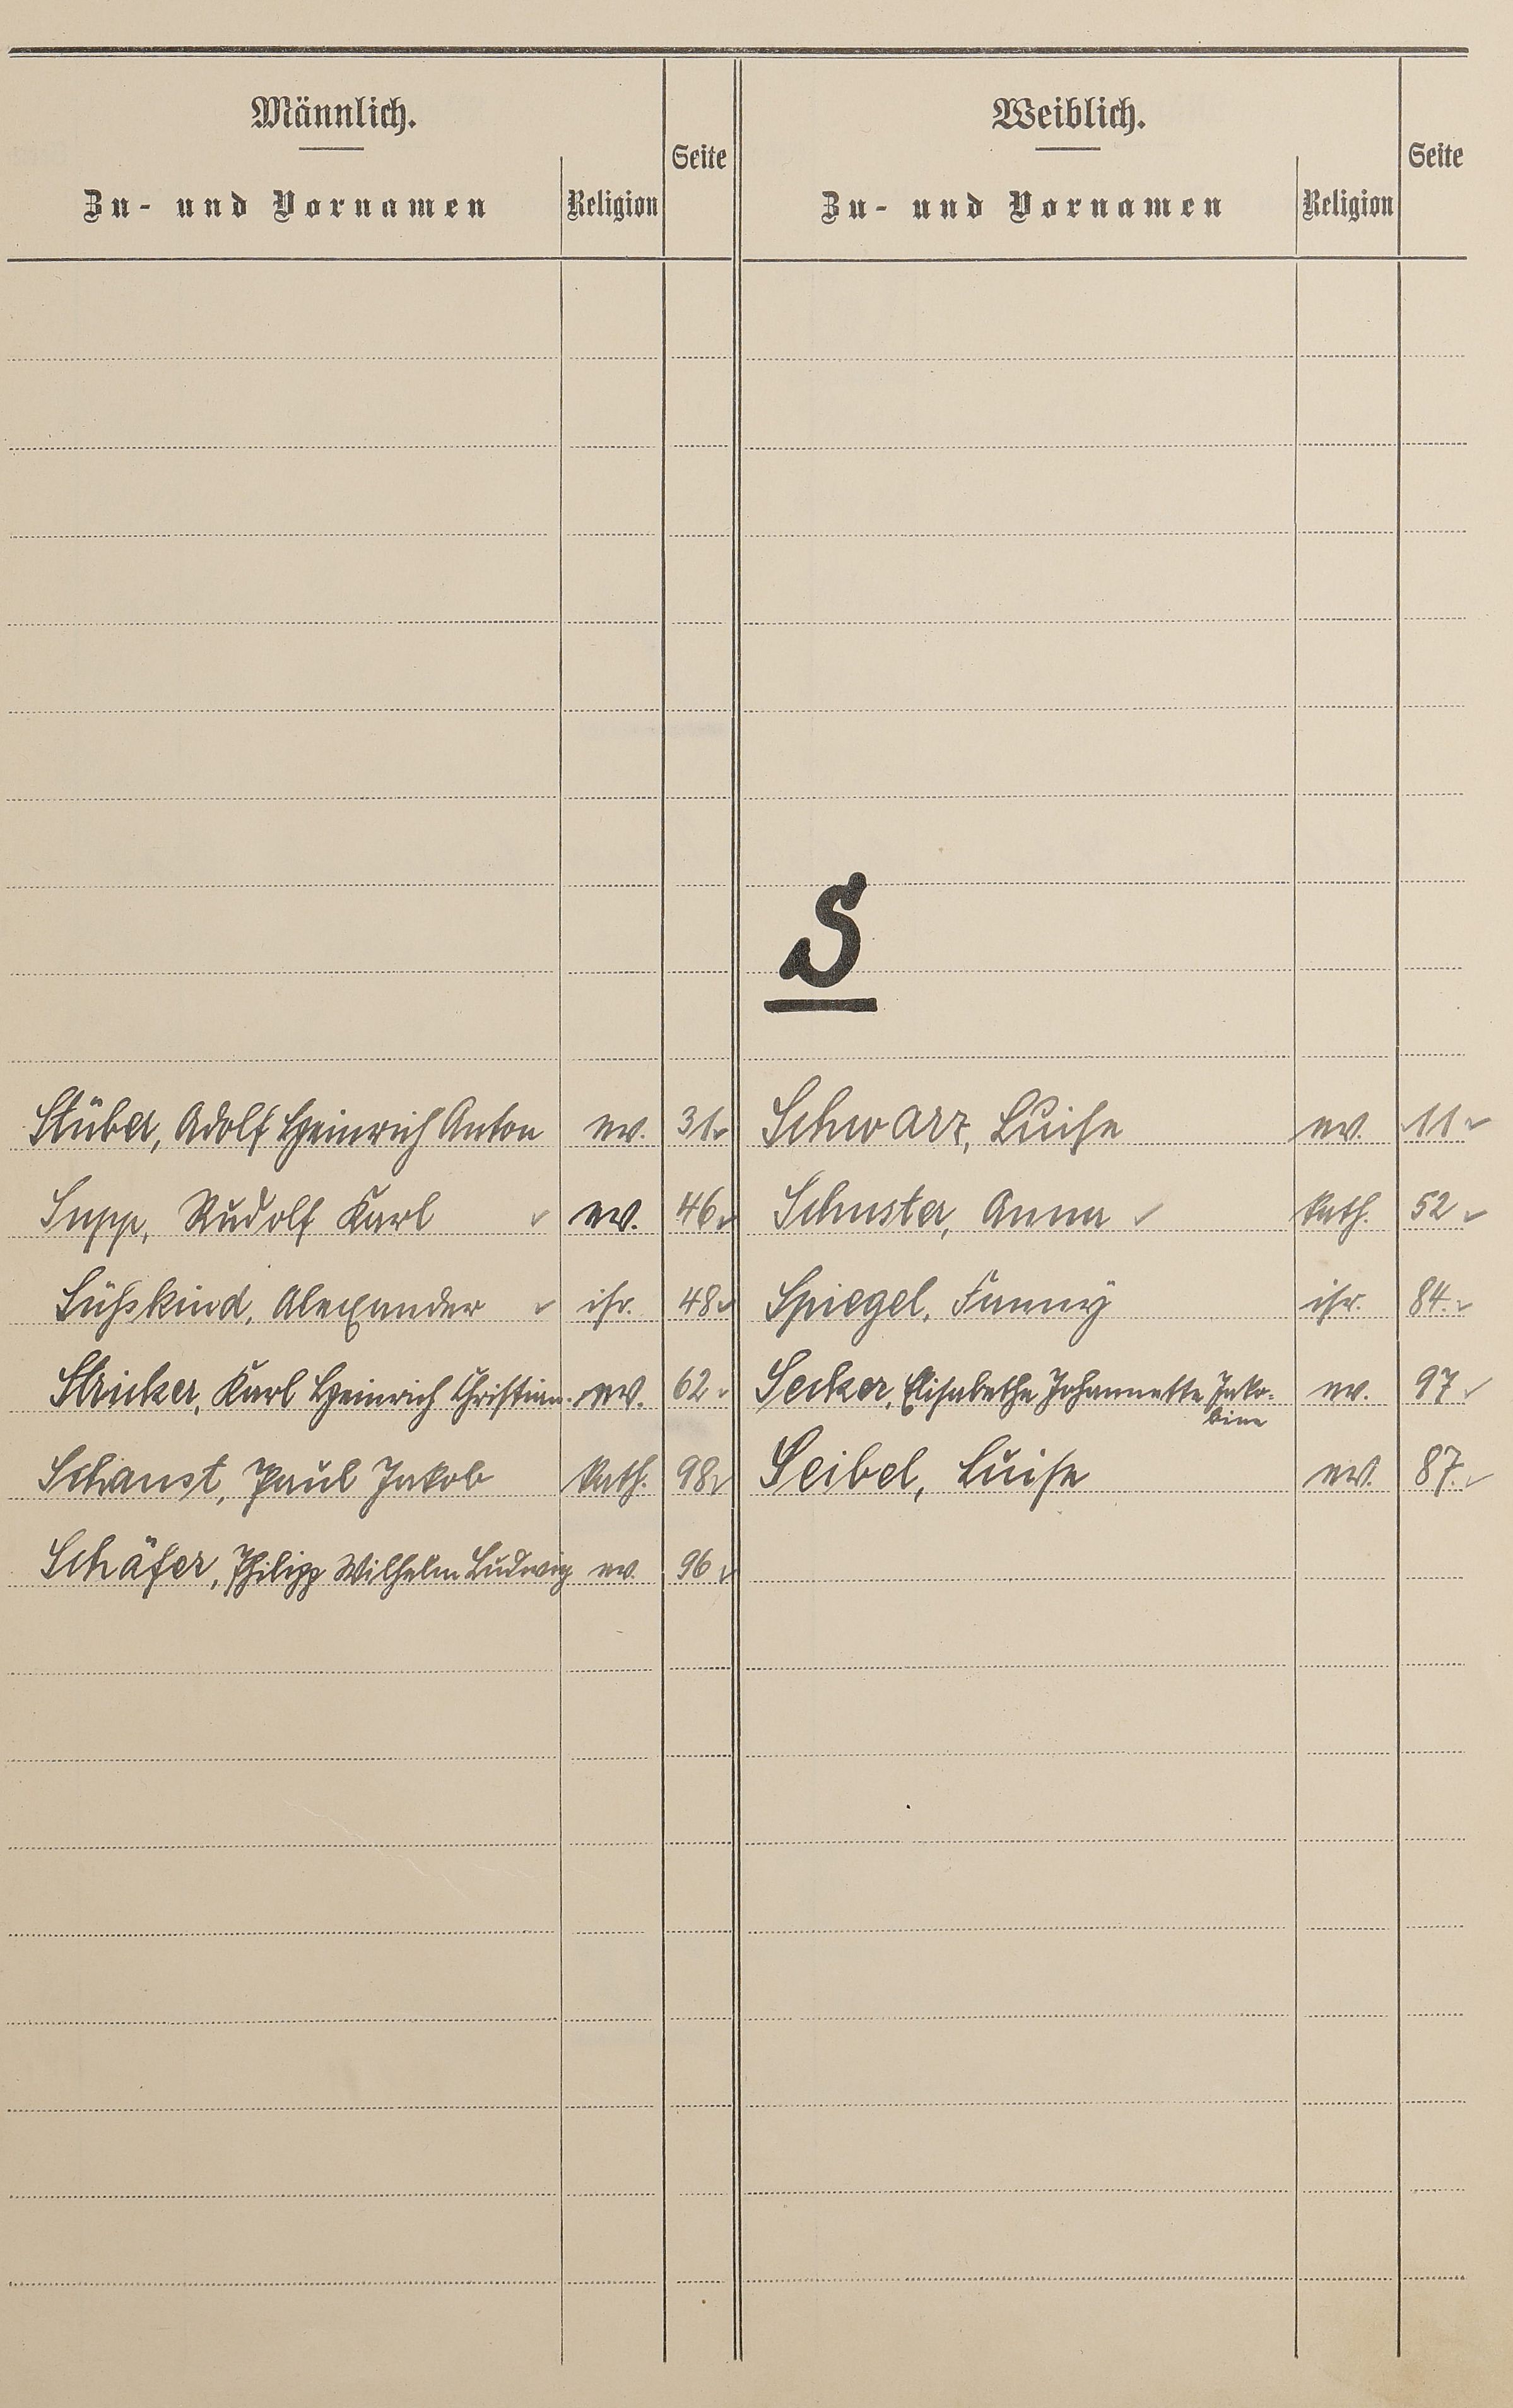 Männlich.
Zu- und Vornamen Religion Seite
Weiblich.
Zu- und Vornamen Religion Seite
S
Stüber, Adolf Heinrich Anton ev. 31 ✓ Schwarz, Luise ev. 11 ✓
Supp, Rudolf Karl ✓ ev. 46 ✓ Schuster, Anna ✓ kath. 52 ✓
Süßkind, Alexander ✓ isr. 48 ✓ Spiegel, Fanny isr. 84. ✓
Stricker, Karl Heinrich Christian. ev. 62 ✓ Secker, Elisabethe Johannette Jako-
bine ev. 97 ✓
Schanst, Paul Jakob kath. 98 ✓ Seibel, Luise ev. 87. ✓
Schäfer, Philipp Wilhelm Ludwig ev. 96 ✓